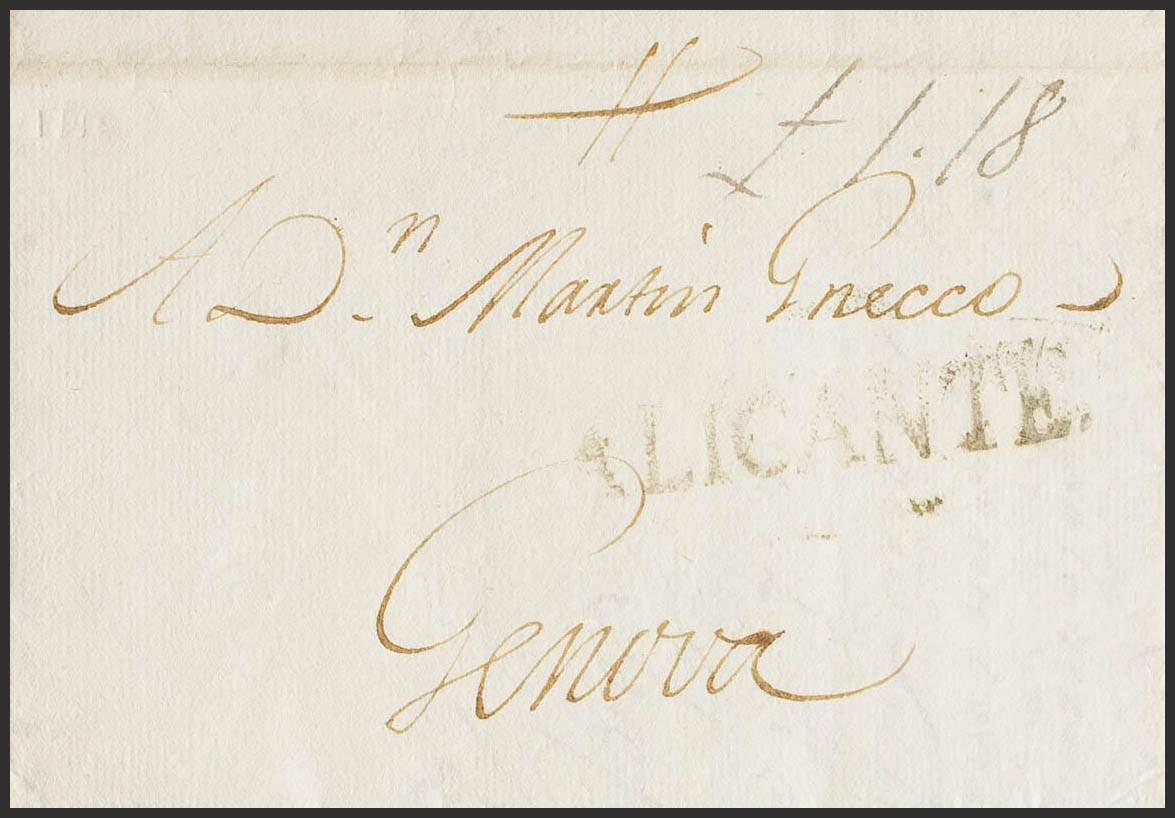 £ 1.18
A Dn. Martin Gnecco
ALICANTE.
Genova